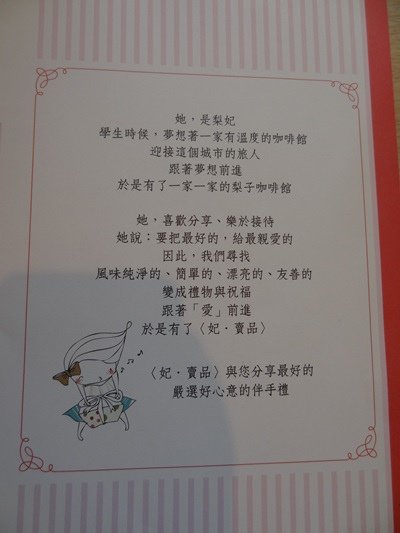 她，是梨妃
學生時候，夢想著一家有溫度的咖啡館
迎接這個城市的旅人
跟著夢想前進
於是有了一家一家的梨子咖啡館
她，喜歡分享、樂於接待
她說：要把最好的，給最親愛的
因此，我們尋找
風味純淨的、簡單的、漂亮的、友善的
變成禮物與祝福
跟著「愛」前進
於是有了〈妃．賣品〉
〈妃．賣品〉與您分享最好的
嚴選好心意的伴手禮